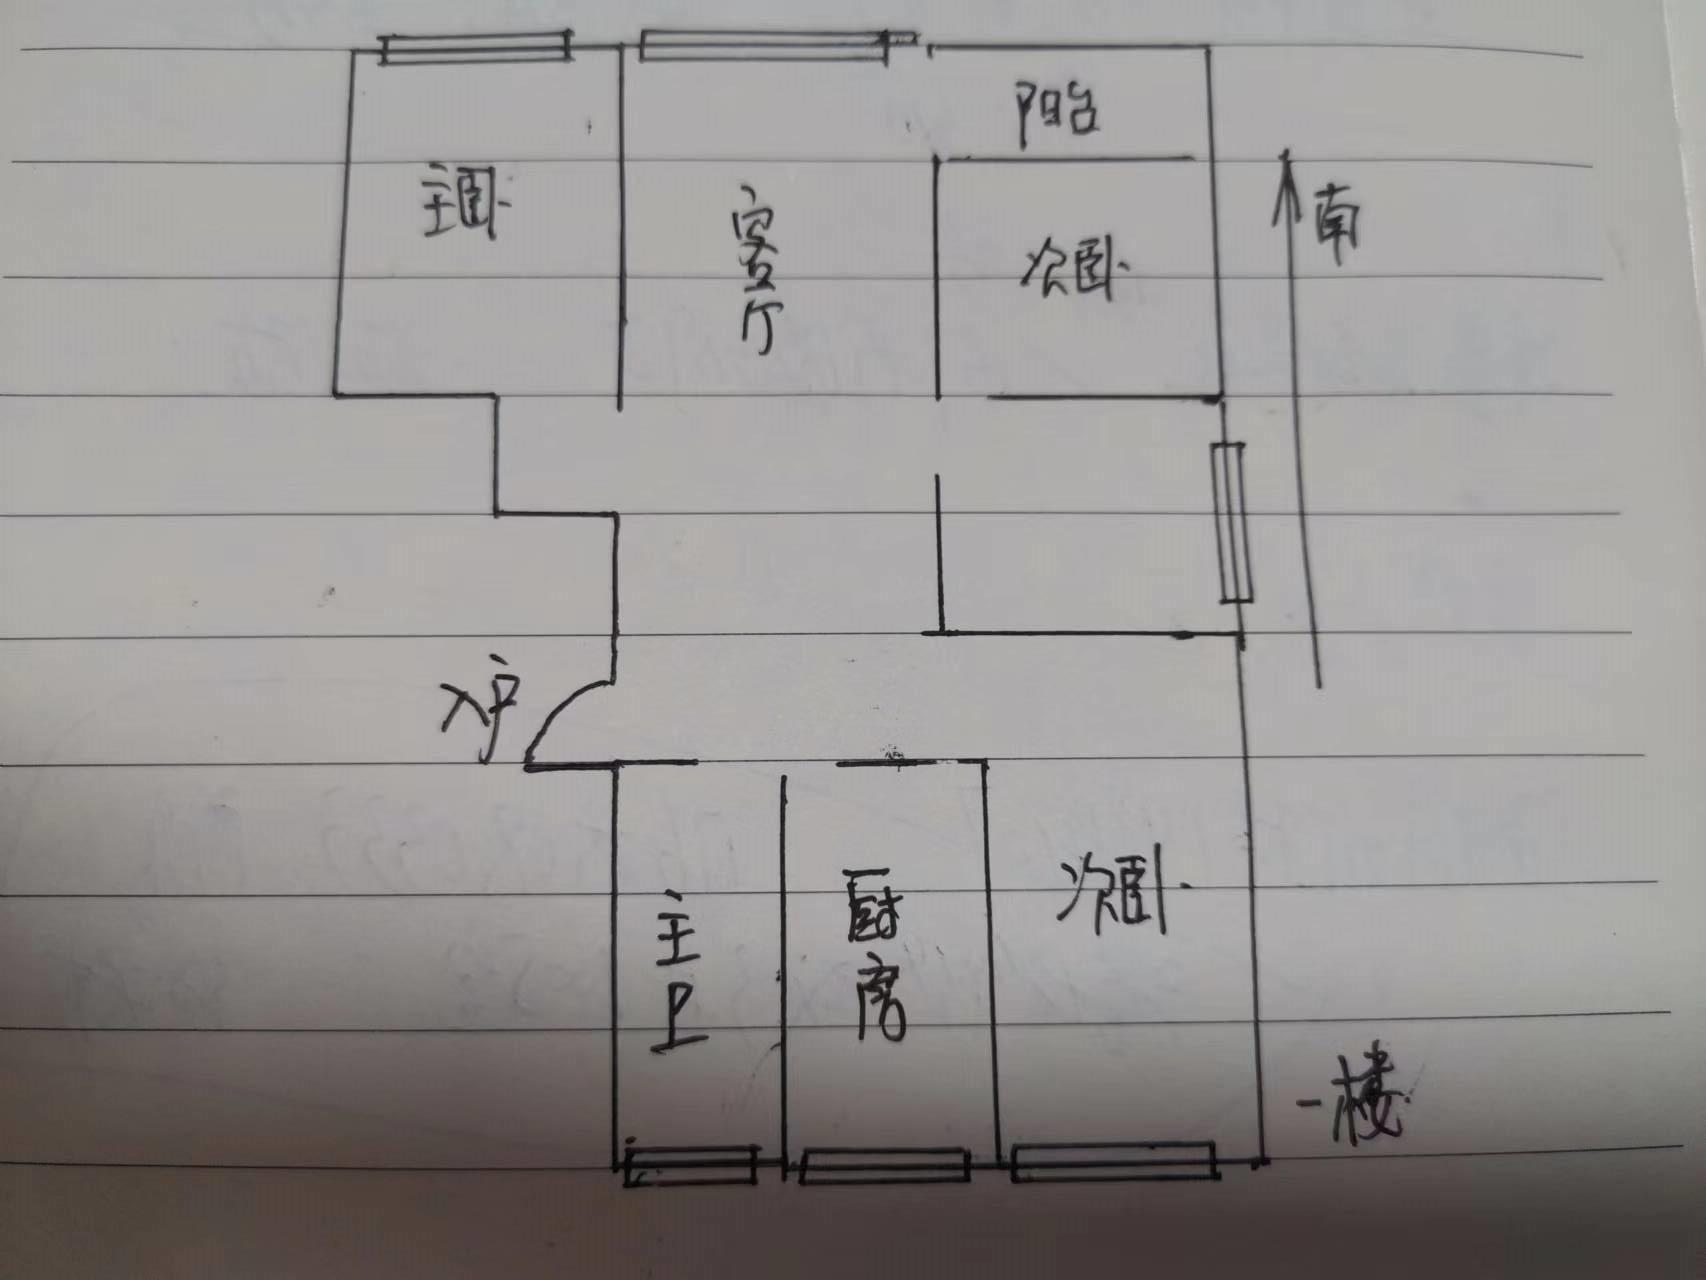 阳台
主卧
客厅
次卧
南
入户
主卫
厨房
次卧
一楼